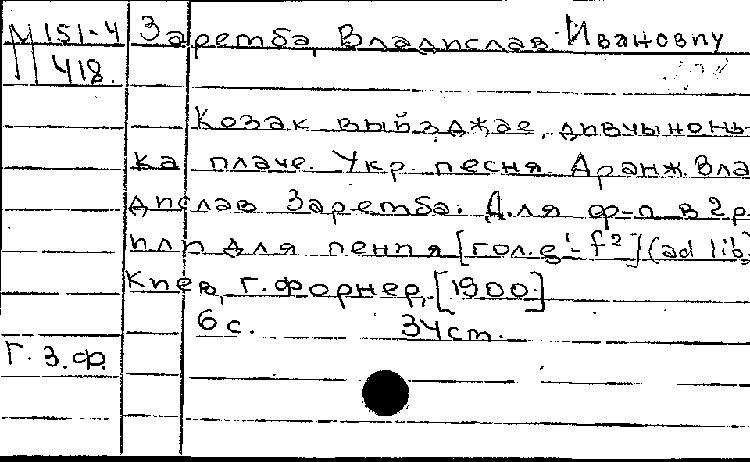 М 151-4 Заремба, Владислав Ивановпч
418.
Козак выйзджае, дивчынонь-
ка плаче. Укр. песня. Аранж. Вла
дислав Заремба. Для ф-п в 2 р.
или для пения [гол. g¹-f²] (ad lib)
Киев, Г. Форнер, [1900.]
6 с. 34 cm.
Г. З. ф.